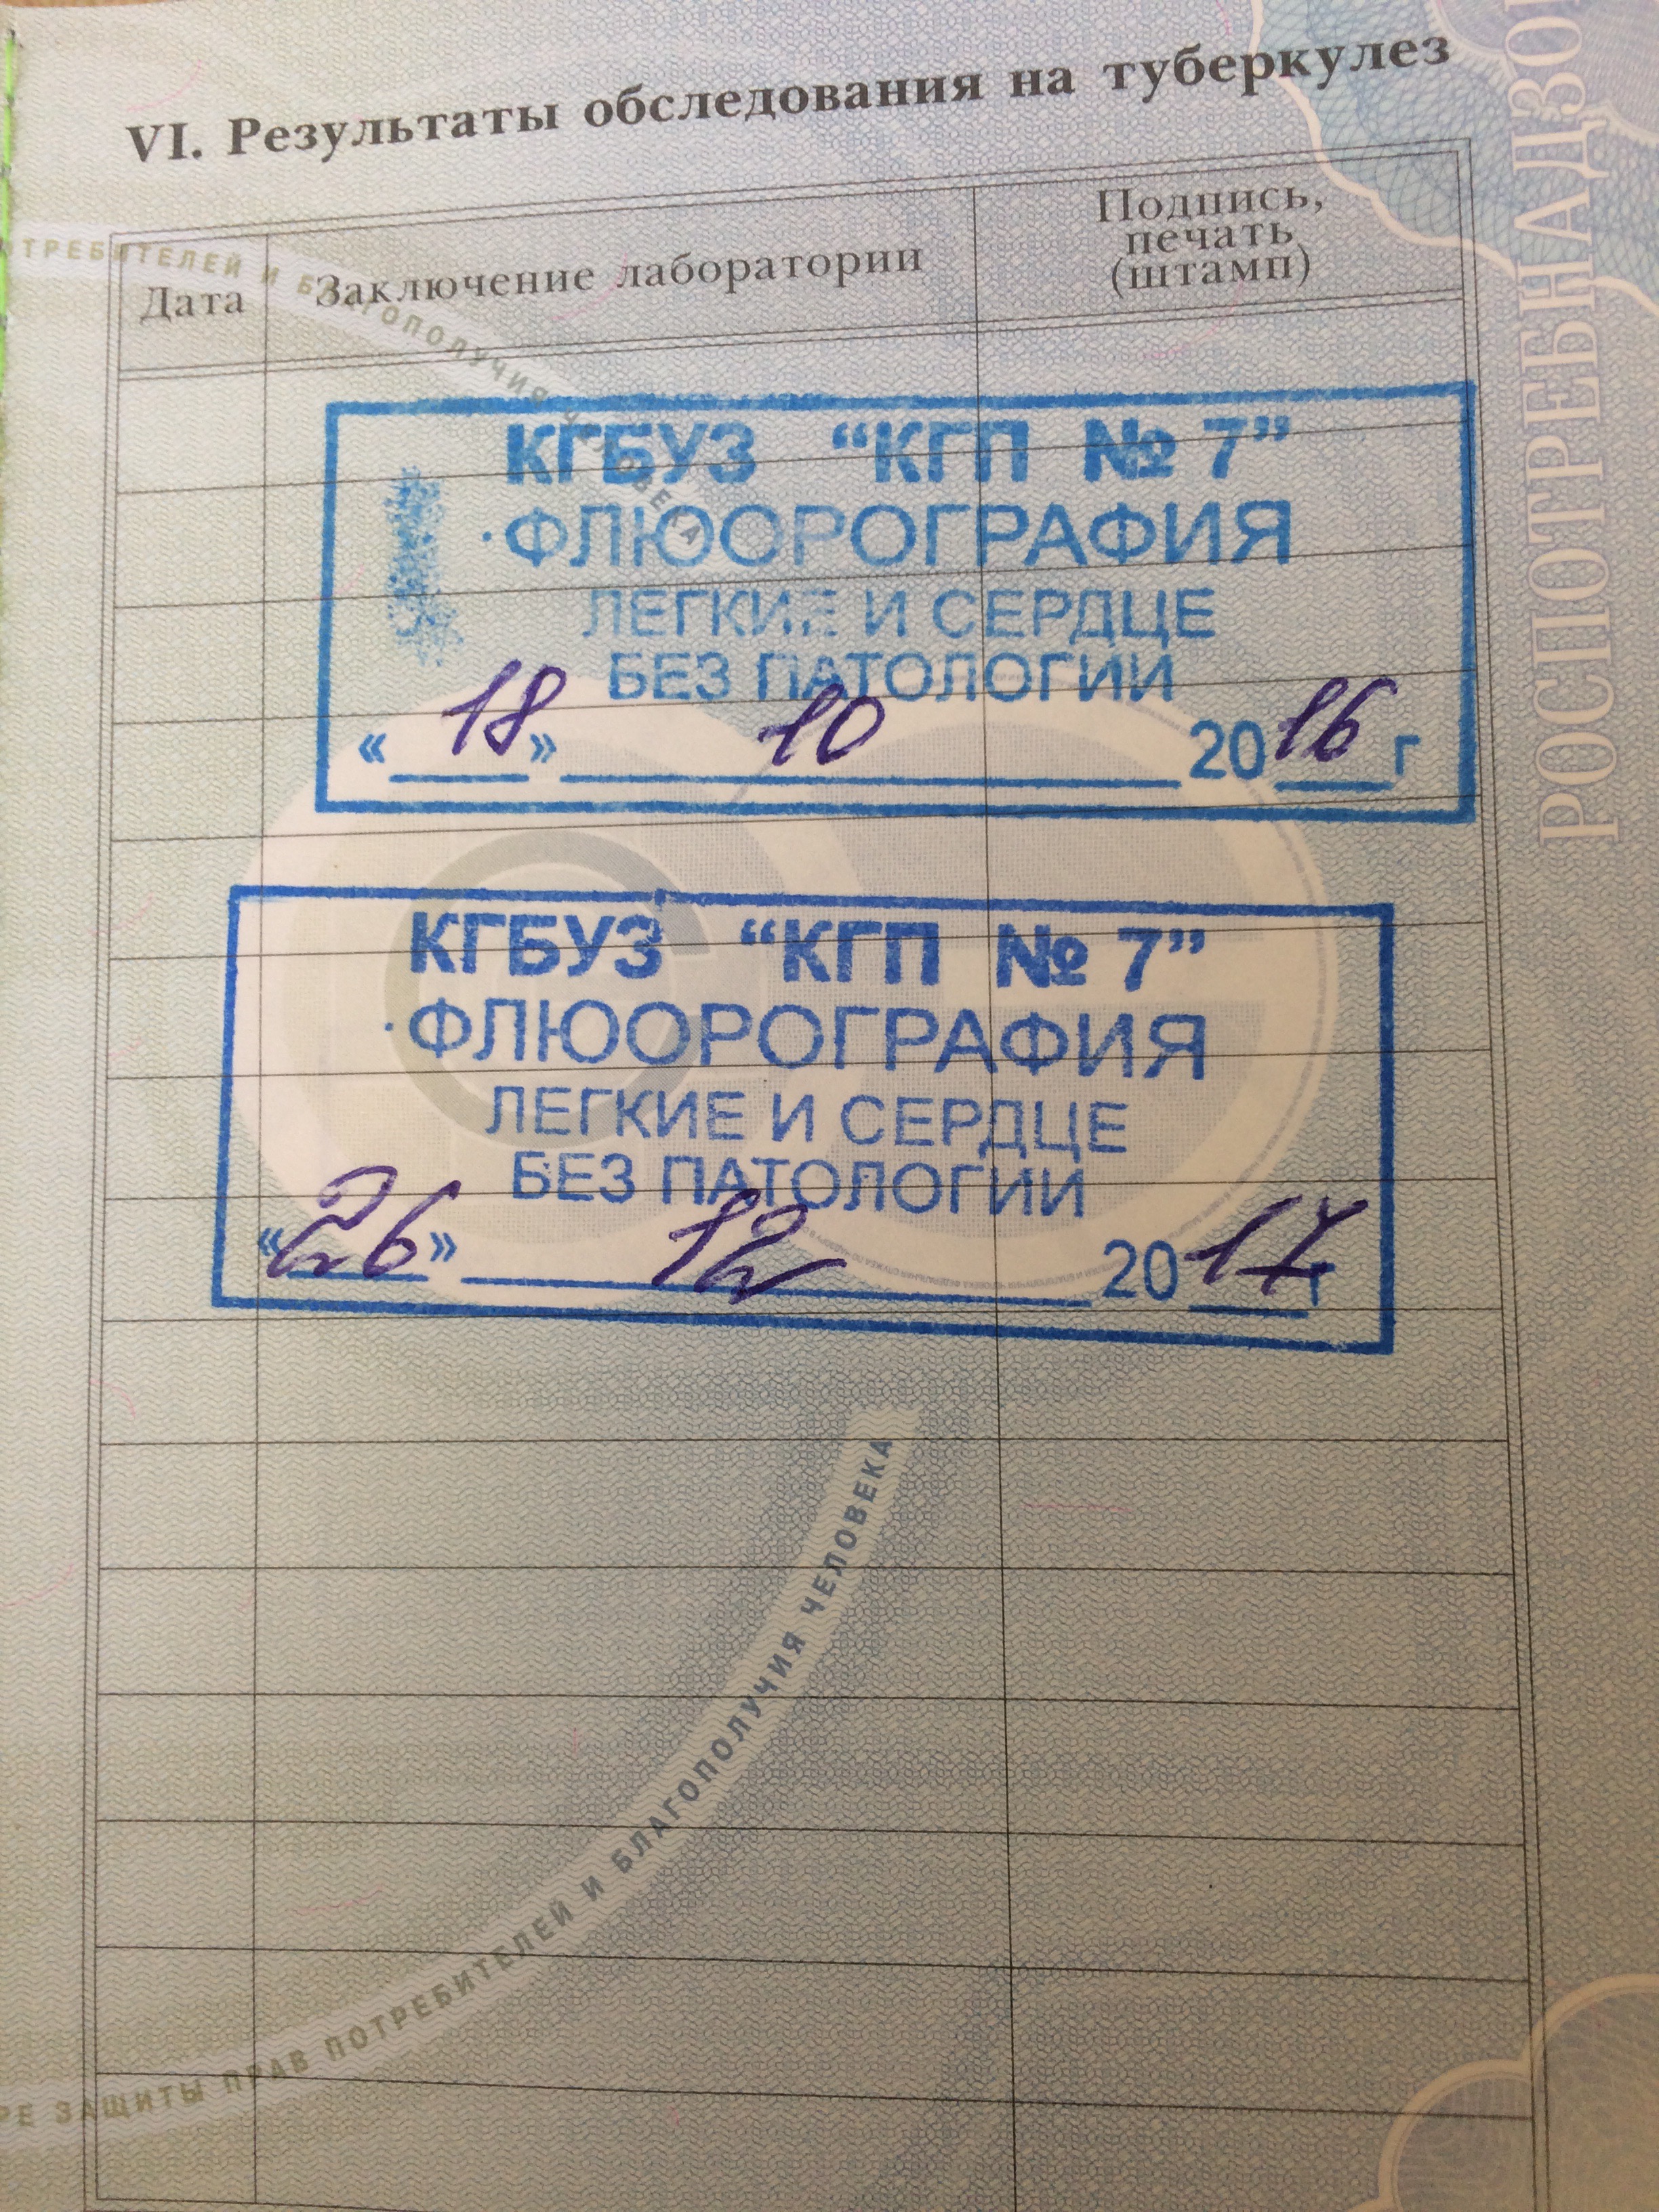 VI. Результаты обследования на туберкулез
Дата
Заключение лаборатории
Подпись,
печать
(штамп)
КГБУЗ “КГП № 7”
ФЛЮОРОГРАФИЯ
ЛЕГКИЕ И СЕРДЦЕ
БЕЗ ПАТОЛОГИИ
«18» 10 2016 г
КГБУЗ “КГП № 7”
ФЛЮОРОГРАФИЯ
ЛЕГКИЕ И СЕРДЦЕ
БЕЗ ПАТОЛОГИИ
«26» 12 2017 г
ПОТРЕБИТЕЛЕЙ И БЛАГОПОЛУЧИЯ ЧЕЛОВЕКА
ЗАЩИТЫ ПРАВ ПОТРЕБИТЕЛЕЙ И БЛАГОПОЛУЧИЯ ЧЕЛОВЕКА
РОСПОТРЕБНАДЗО